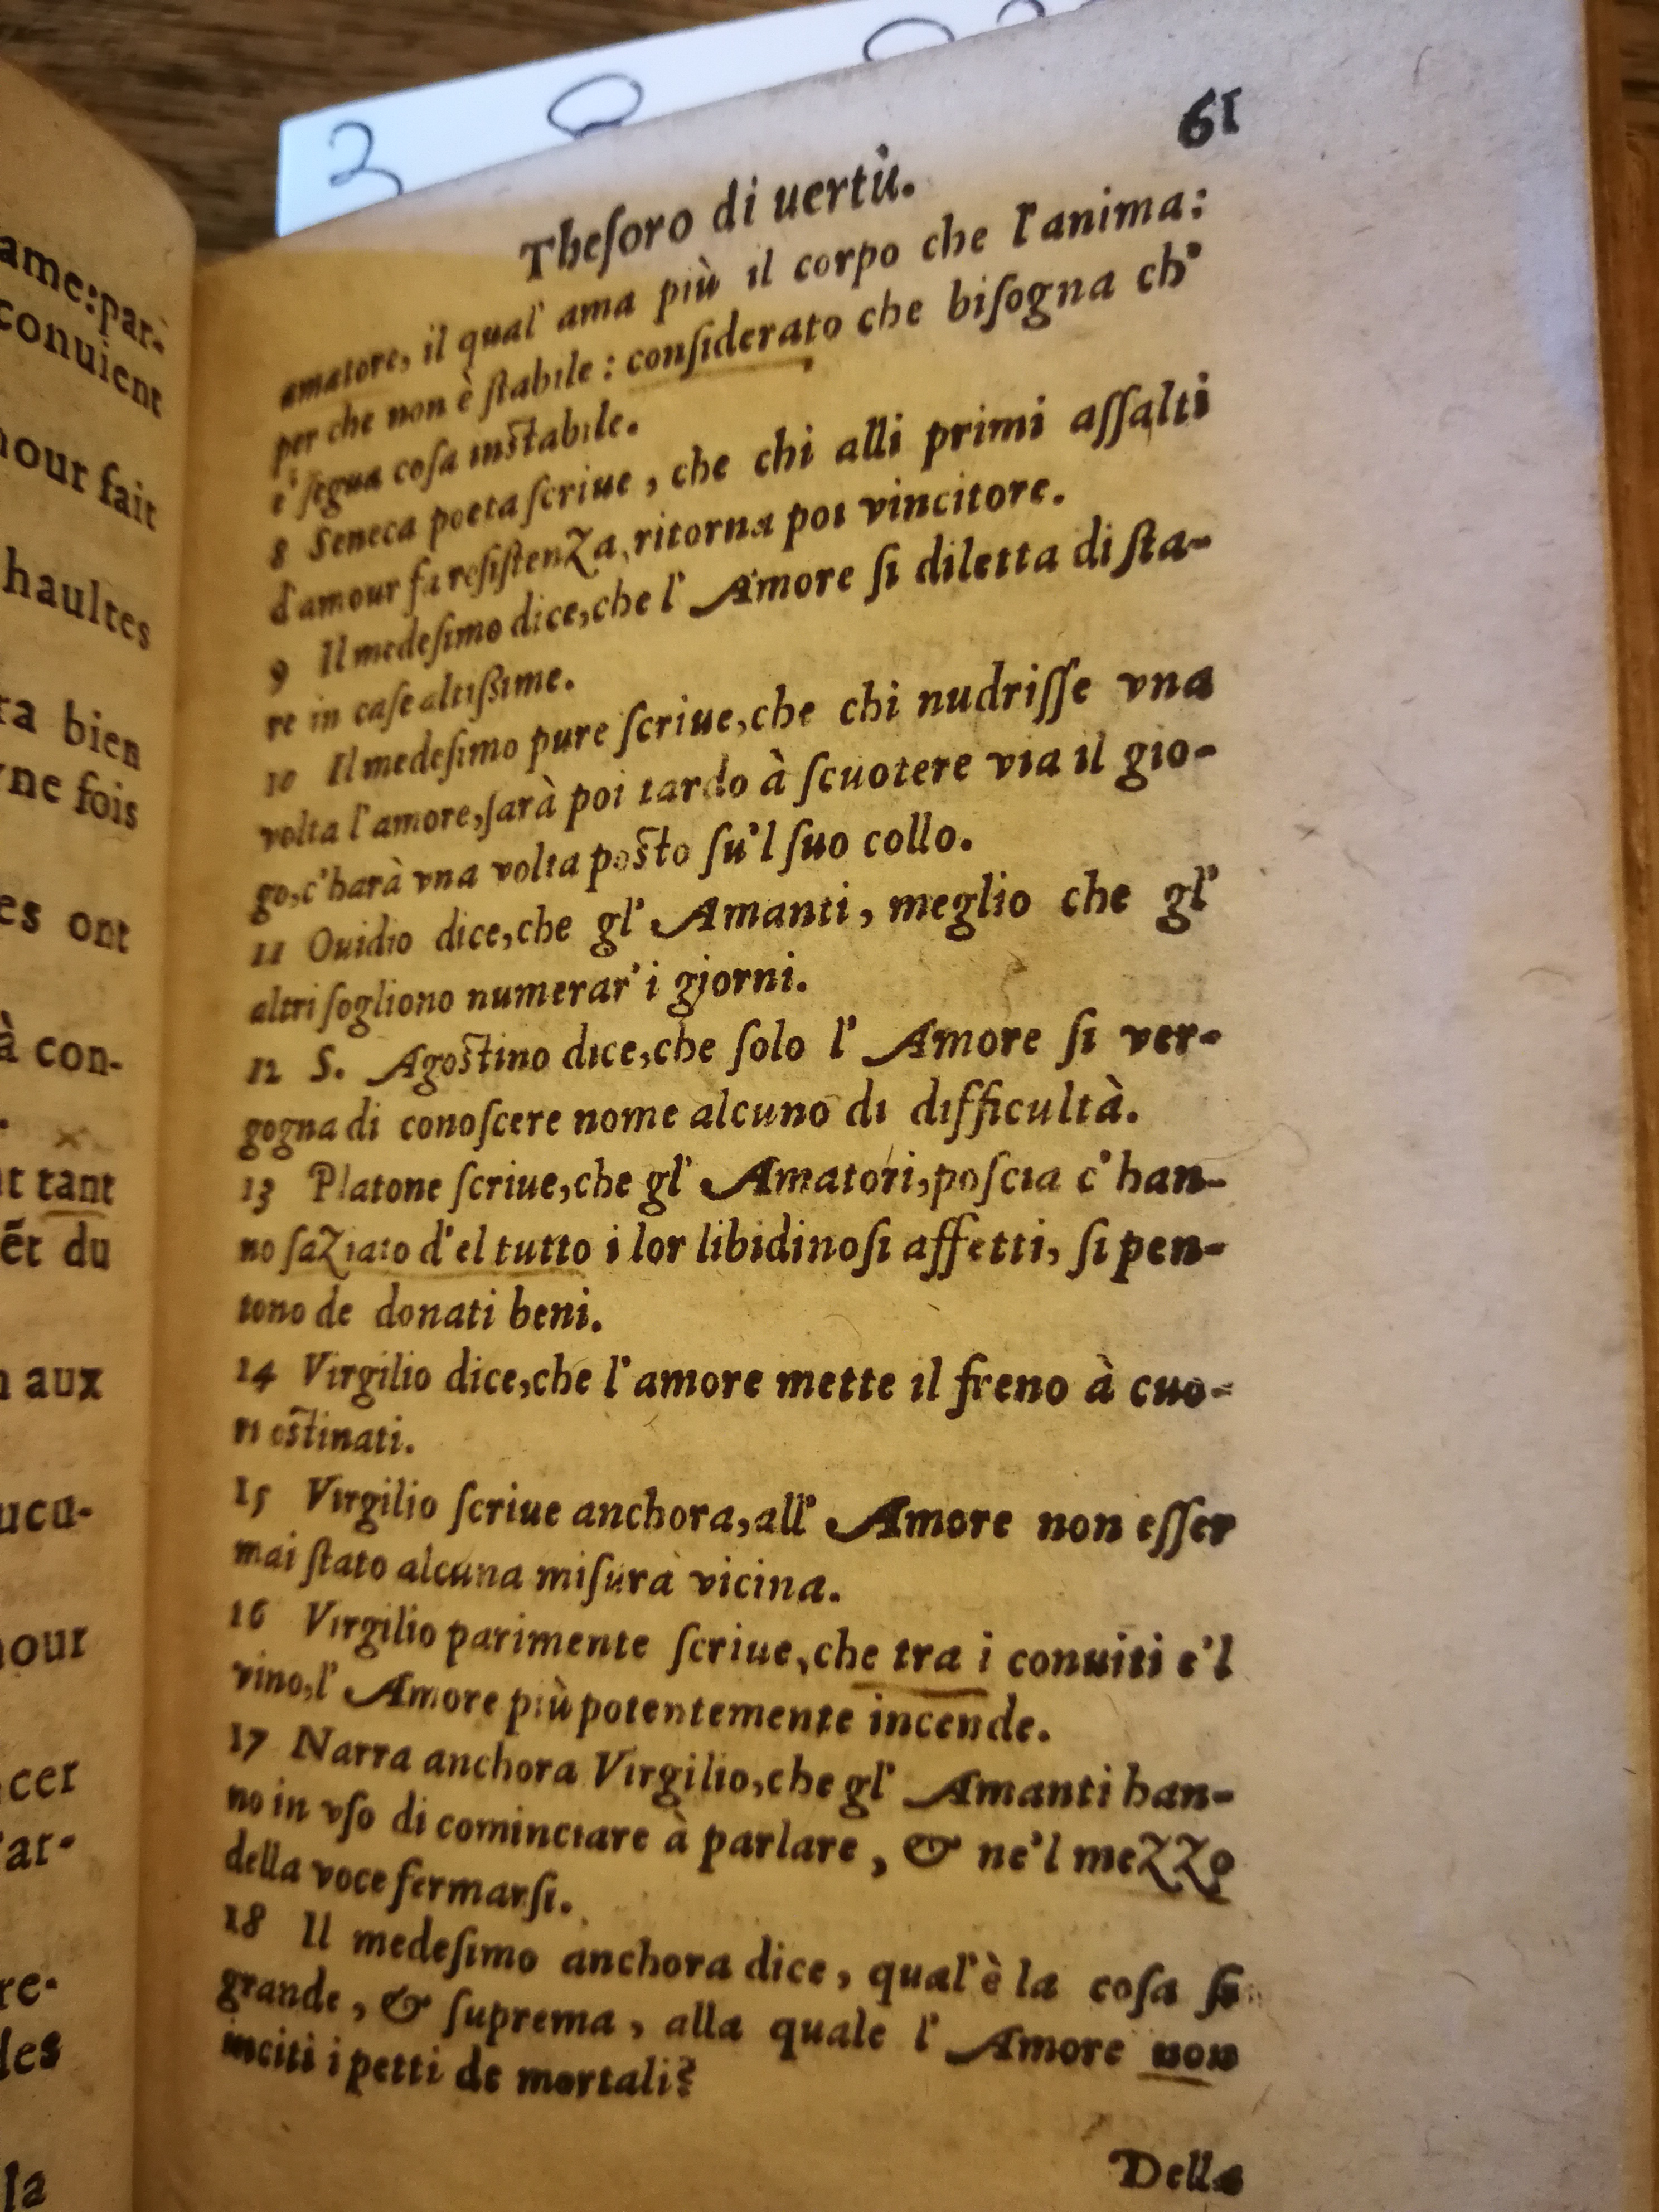 ame:par-
conuient
our fait
haultes
ra bien
ne fois
es ont
à con-
t tant
ēt du
aux
ucu-
our
cer
ar-
re-
des
la
61
Theſoro di uertù.
amatore, il qual' ama più il corpo che l'anima:
per che non è ſtabile : conſiderato che biſogna ch'
e' ſegua coſa inſtabile.
8 Seneca poeta ſcriue , che chi alli primi aſſalti
d'amour fa reſiſtenza, ritorna poi vincitore.
9 Il medeſimo dice,che l' Amore ſi diletta di ſta-
re in caſe altiſſime.
10 Il medeſimo pure ſcriue,che chi nudriſſe vna
volta l'amore,ſarà poi tardo à ſcuotere via il gio-
go,c'harà vna volta poſto ſu'l ſuo collo.
11 Ouidio dice,che gl' Amanti, meglio che gl'
altri ſogliono numerar' i giorni.
12 S. Agoſtino dice,che ſolo l' Amore ſi ver-
gogna di conoſcere nome alcuno di difficultà.
13 Platone ſcriue,che gl' Amatori,poſcia c'han-
no ſaziato d'el tutto i lor libidinoſi affetti, ſi pen-
tono de donati beni.
14 Virgilio dice,che l'amore mette il freno à cuo-
ri oſtinati.
15 Virgilio ſcriue anchora,all' Amore non eſſer
mai ſtato alcuna miſura vicina.
16 Virgilio parimente ſcriue,che tra i conuiti e'l
vino,l' Amore più potentemente incende.
17 Narra anchora Virgilio,che gl' Amanti han-
no in vſo di cominciare à parlare , & ne'l mezzo
della voce fermarſi.
18 Il medeſimo anchora dice , qual'è la coſa ſi
grande , & ſuprema , alla quale l' Amore non
inciti i petti de mortali?
Della